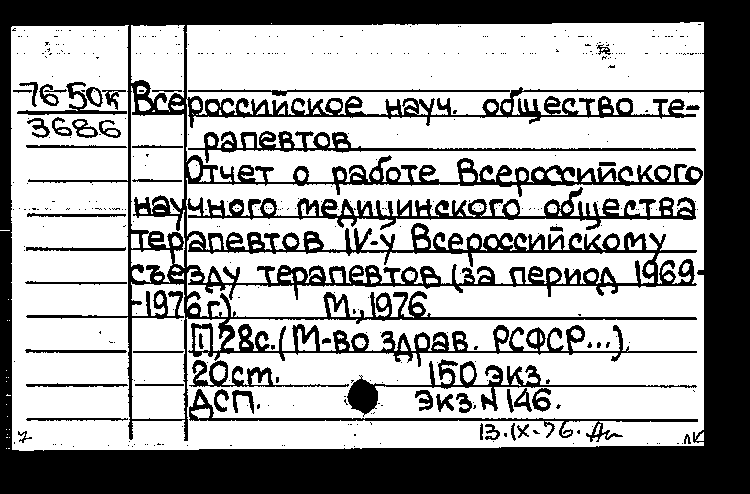 76-50к Всероссийское науч. общество те-
3686 рапевтов.
Отчет о работе Всероссийского
научного медицинского общества
терапевтов IV-у Всероссийскому
съезду терапевтов (за период 1969-
-1976 г.). М., 1976.
[1], 28с. (М-во здрав. РСФСР...).
20см. 150 экз.
ДСП. экз. N 146.
13.IX.76.
лк